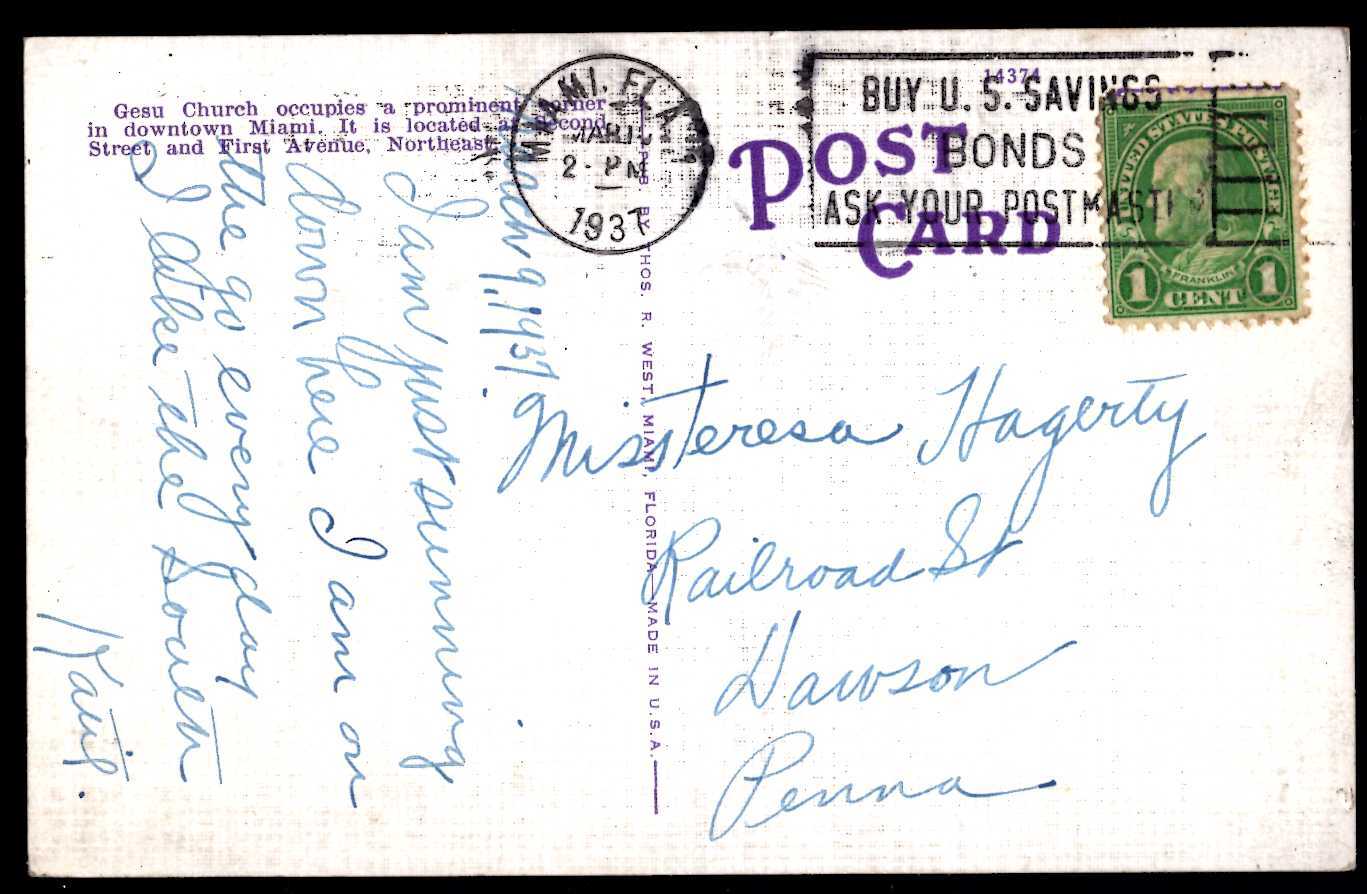 Gesu Church occupies a prominent corner
in downtown Miami. It is located at Second
Street and First Avenue, Northeast.
MIAMI, FLA.
MAR
2 - PM
1937
14374
BUY U. S. SAVINGS
BONDS
ASK YOUR POSTMASTER
POST
CARD
UNITED STATES POSTAGE
FRANKLIN
1 CENT 1
PUB. BY THOS. R. WEST, MIAMI, FLORIDA—MADE IN U.S.A.
March 9, 1937
I am just sunning
down here I am on
the go every day
I like the South
Miss Teresa Hagerty
Railroad St
Dawson
Penna